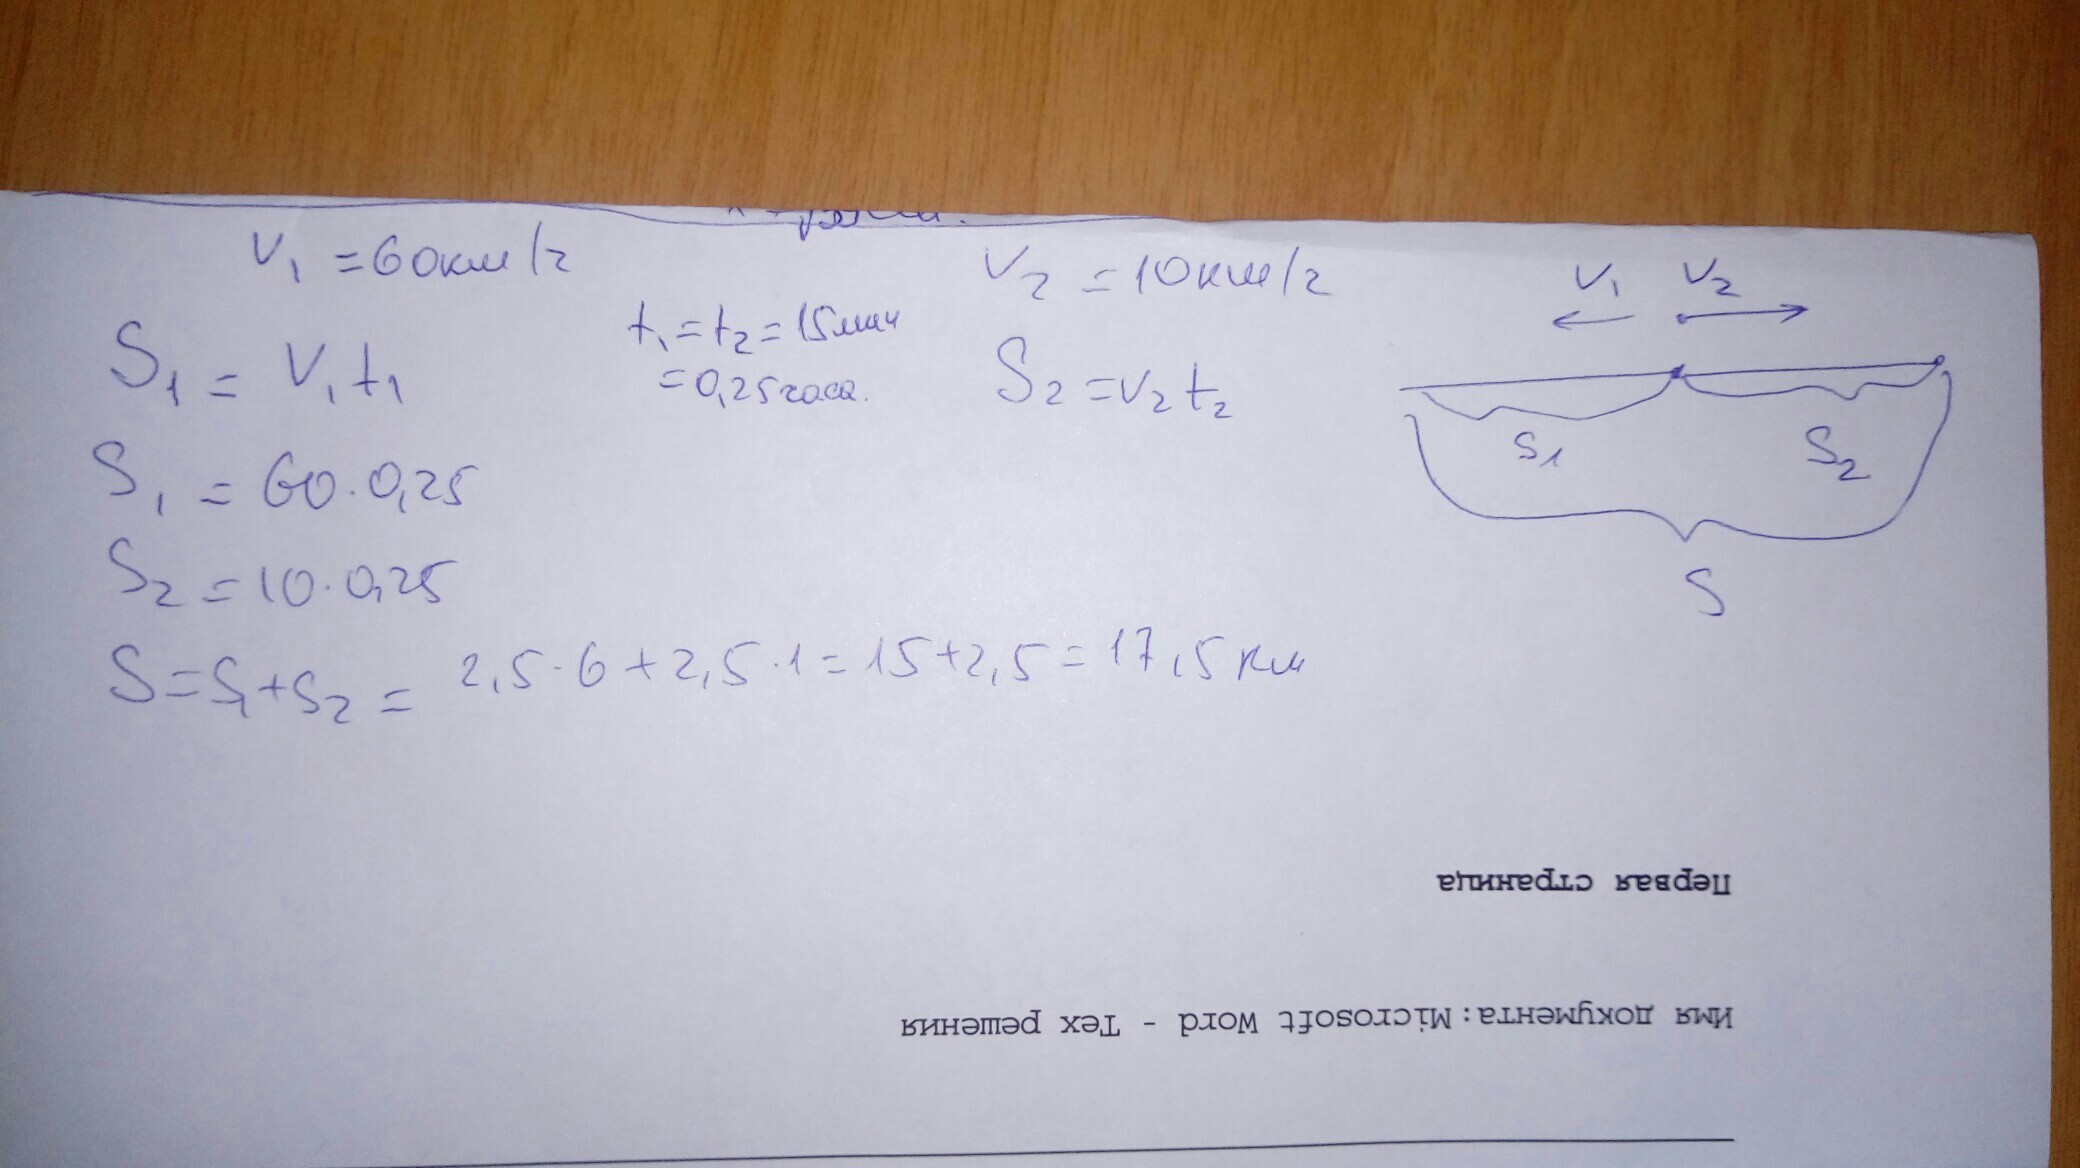 V₁ = 60км/г
V₂ = 10км/г
V₁ V₂
t₁ = t₂ = 15мин
= 0,25часа.
S₁ = V₁t₁
S₂ = V₂t₂
S₁ S₂
S₁ = 60·0,25
S₂ = 10·0,25
S
S = S₁+S₂ = 2,5·6+2,5·1 = 15+2,5 = 17,5 км
Первая страница
Имя документа: Microsoft Word - Тех решения